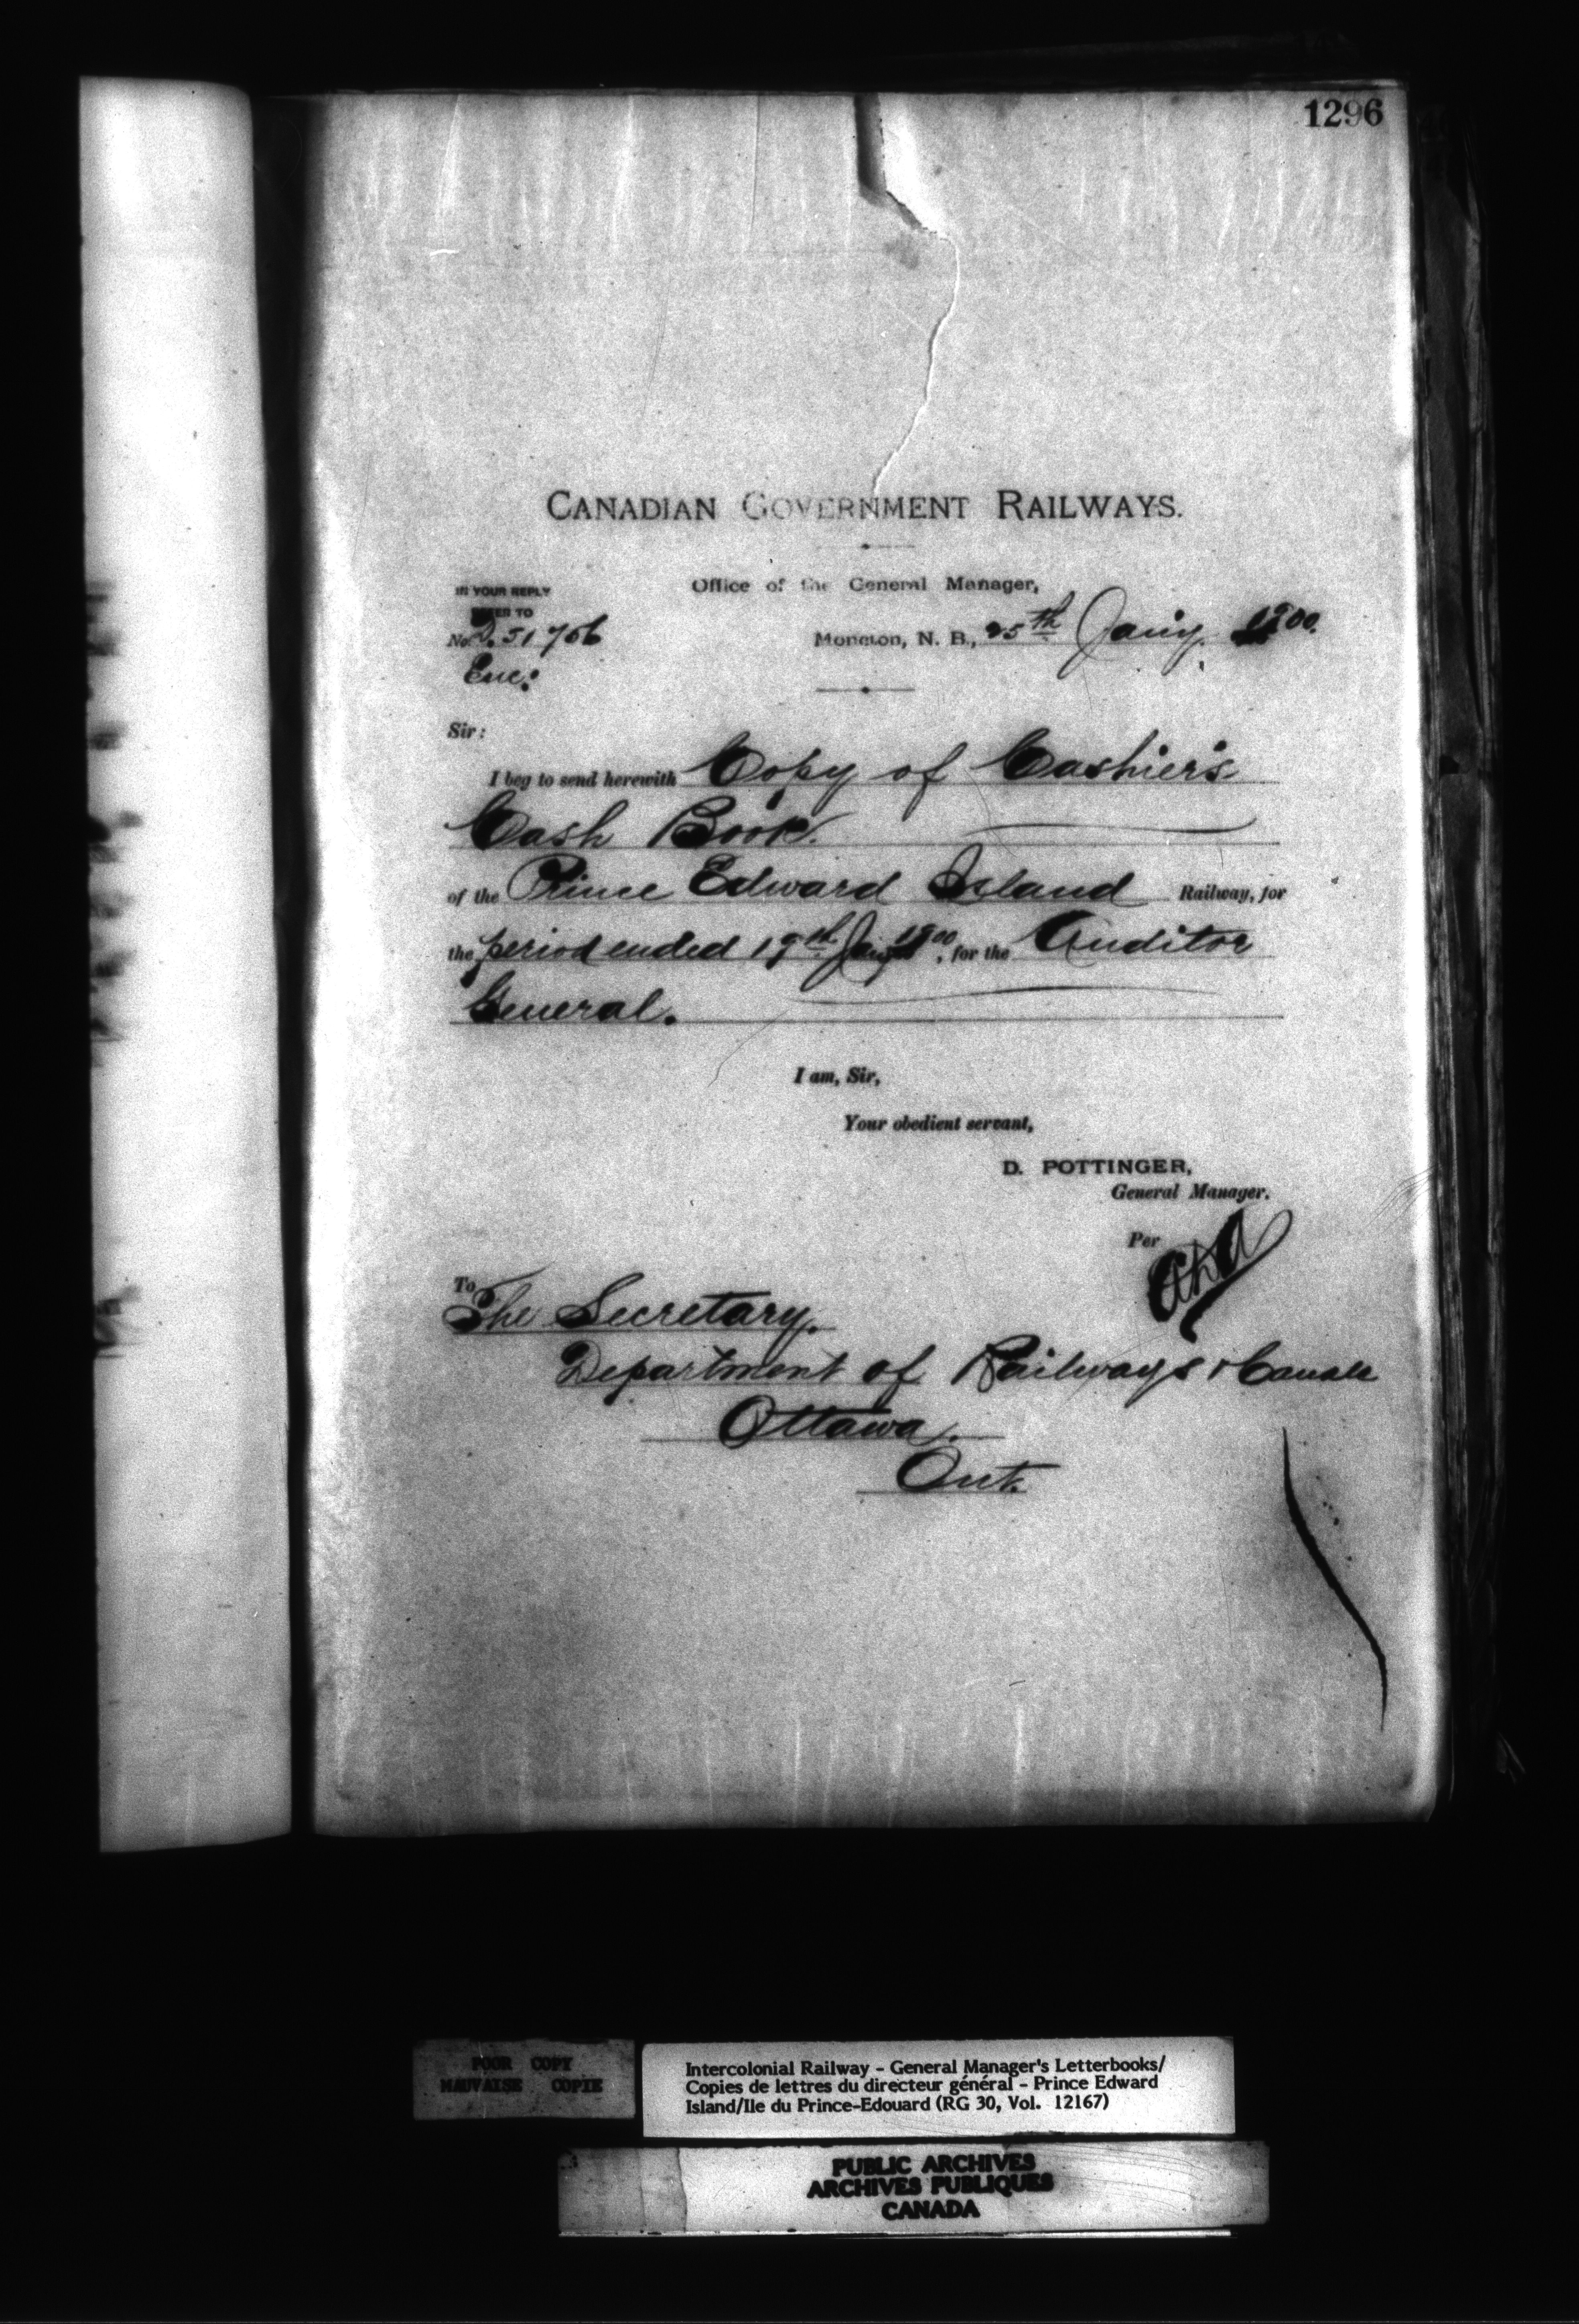 1296
CANADIAN GOVERNMENT RAILWAYS.
Office of the General Manager,
IN YOUR REPLY
REFER TO
No. D. 51706
Enc:
Moncton, N. B., 25th Jany. 1900.
Sir:
I beg to send herewith Copy of Cashier's
Cash Book.
of the Prince Edward Island Railway, for
the period ended 19th Jany 1900, for the Auditor
General.
I am, Sir,
Your obedient servant,
D. POTTINGER,
General Manager.
Per
To
The Secretary.
Department of Railways & Canals
Ottawa.
Ont.
POOR COPY
MAUVAISE COPIE
Intercolonial Railway - General Manager's Letterbooks/
Copies de lettres du directeur général - Prince Edward
Island/Ile du Prince-Edouard (RG 30, Vol. 12167)
PUBLIC ARCHIVES
ARCHIVES PUBLIQUES
CANADA